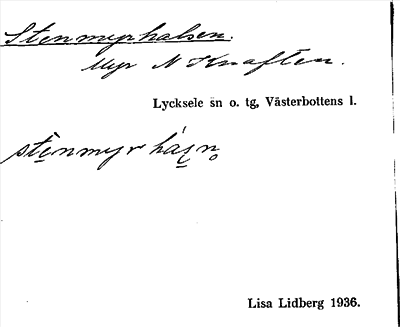 Stenmyrhalsen.
Myr N Knaften.
Lycksele sn o. tg, Västerbottens l.
Lisa Lidberg 1936.